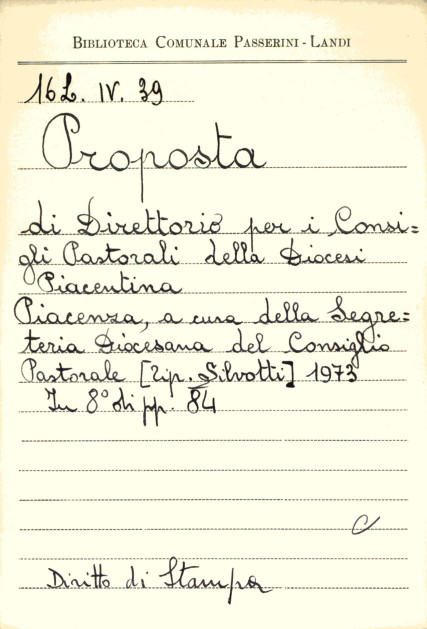 BIBLIOTECA COMUNALE PASSERINI - LANDI
16L. IV. 39
Proposta
di Direttorio per i Consi=
gli Pastorali della Diocesi
Piacentina
Piacenza, a cura della Segre=
teria Diocesana del Consiglio
Pastorale [Tip. Silvotti] 1973
In 8° di pp. 84
C
Diritto di Stampa